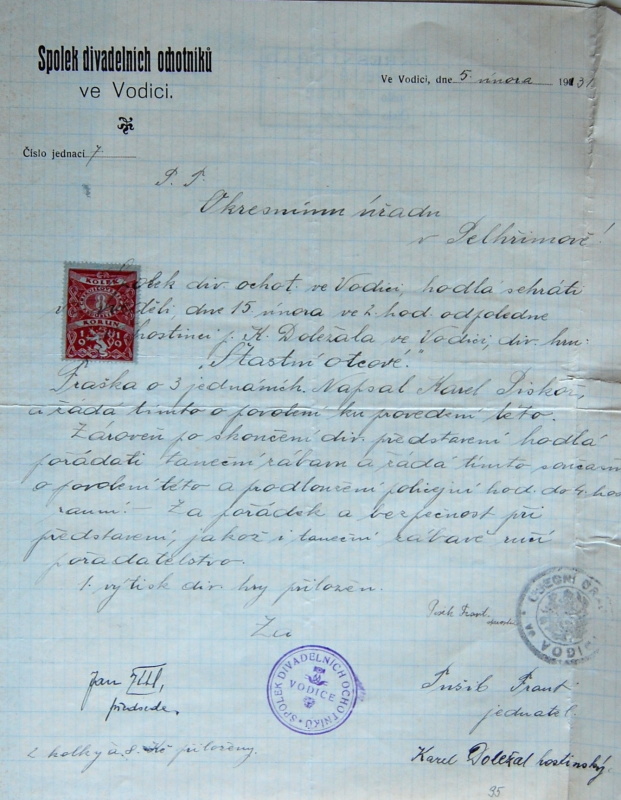 Spolek divadelních ochotníků
ve Vodici.
Ve Vodici, dne 5. února 1931
Číslo jednací 7
P. T.
Okresnímu úřadu
v Pelhřimově!
Spolek div. ochot. ve Vodici, hodlá sehráti
v neděli, dne 15 února ve 2 hod. odpoledne
hostinci p. K. Doležala ve Vodici, div. hru:
"Šťastní otcové."
Fraška o 3 jednáních. Napsal Karel Piskoř,
a žádá tímto o povolení ku provedení této.
Zároveň po skončení div. představení hodlá
pořádati taneční zábavu a žádá tímto současně
o povolení této a prodloužení policejní hod. do 4 hod
ranní. Za pořádek a bezpečnost při
představení, jakož i taneční zábavě ručí
pořadatelstvo.
1. výtisk div. hry přiložen.
Za
KOLEK
8
KORUN
19 19
SPOLEK DIVADELNÍCH OCHOTNÍKŮ
VODICE
OBECNÍ
Jan
předseda.
Frant.
jednatel.
2 kolky à 8 Kč přiloženy.
Karel Doležal hostinský.
95